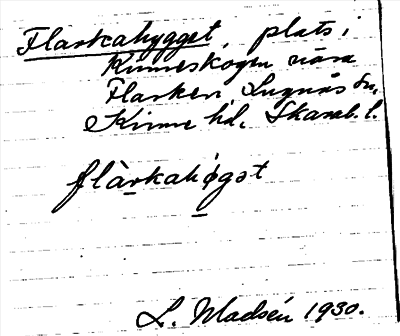 Flarkahygget, plats i
Kinneskogen nära
Flarken Lugnås sn,
Kinne hd. Skarab. l.
flàrkahøgət
L. Madsén 1930.